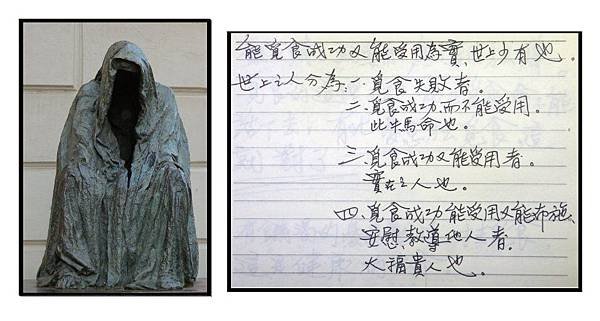 能覓食成功又能受用為實、世上少有也。
世上之人分為：一、覓食失敗者。
二、覓食成功、而不能受用。
此牛馬命也。
三、覓食成功又能受用者。
實在之人也。
四、覓食成功、能受用又能布施、
安慰、教導他人者。
大福貴人也。